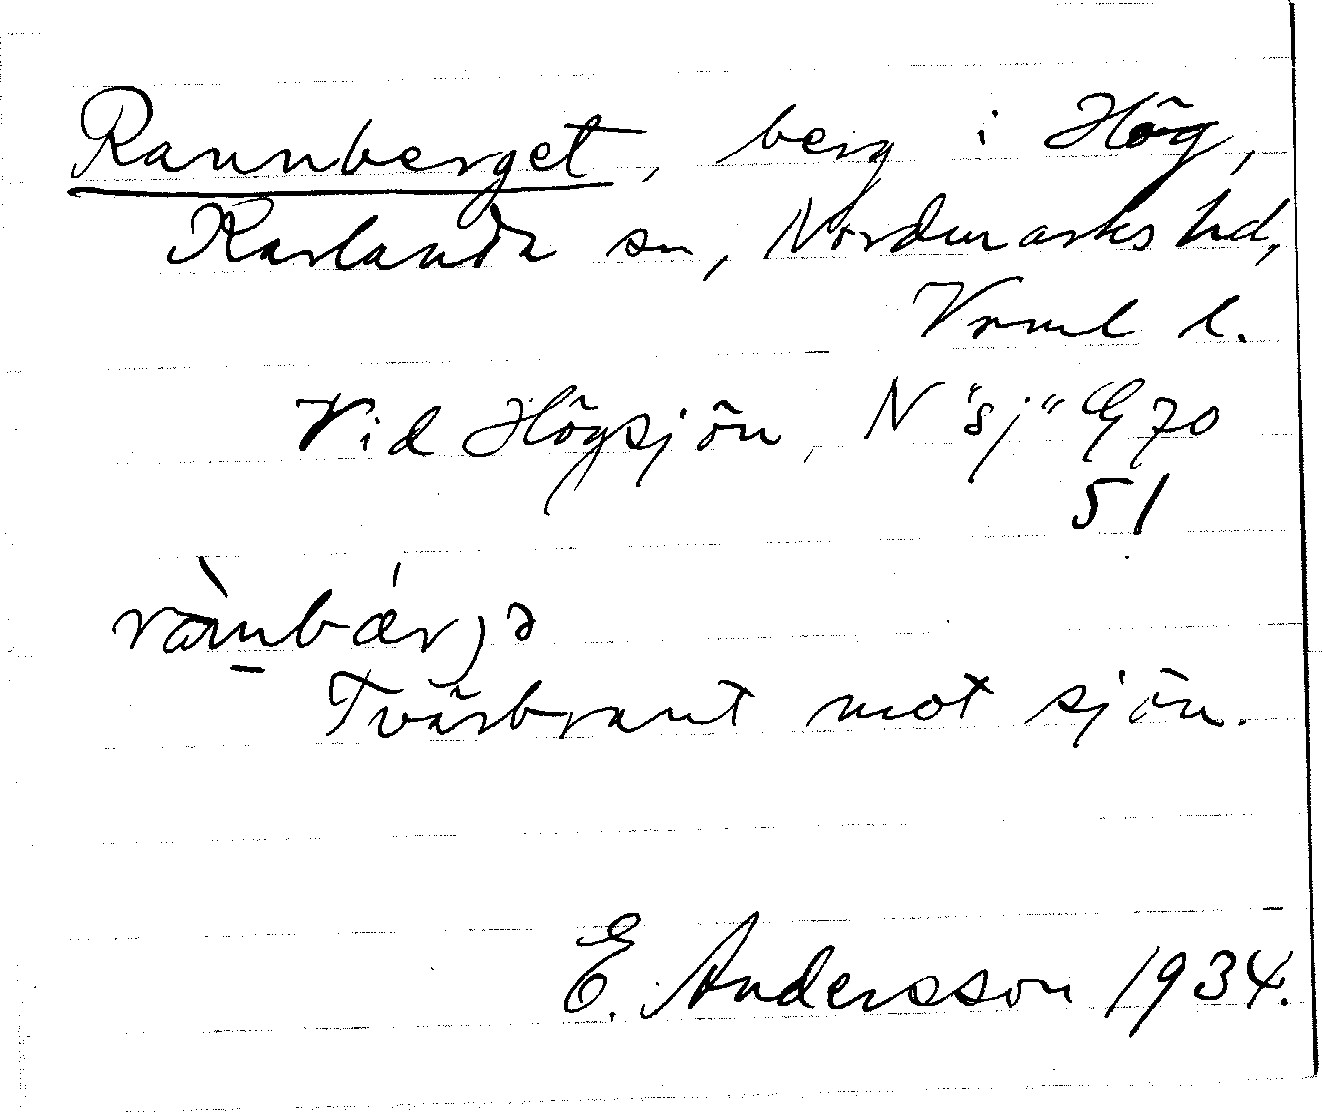 Rannberget, berg i Hög,
Karlanda sn, Nordmarks hd,
Vrml l.
Vid Högsjön, N "sj" G 70
51
Tvärbrant mot sjön.
E. Andersson 1934.